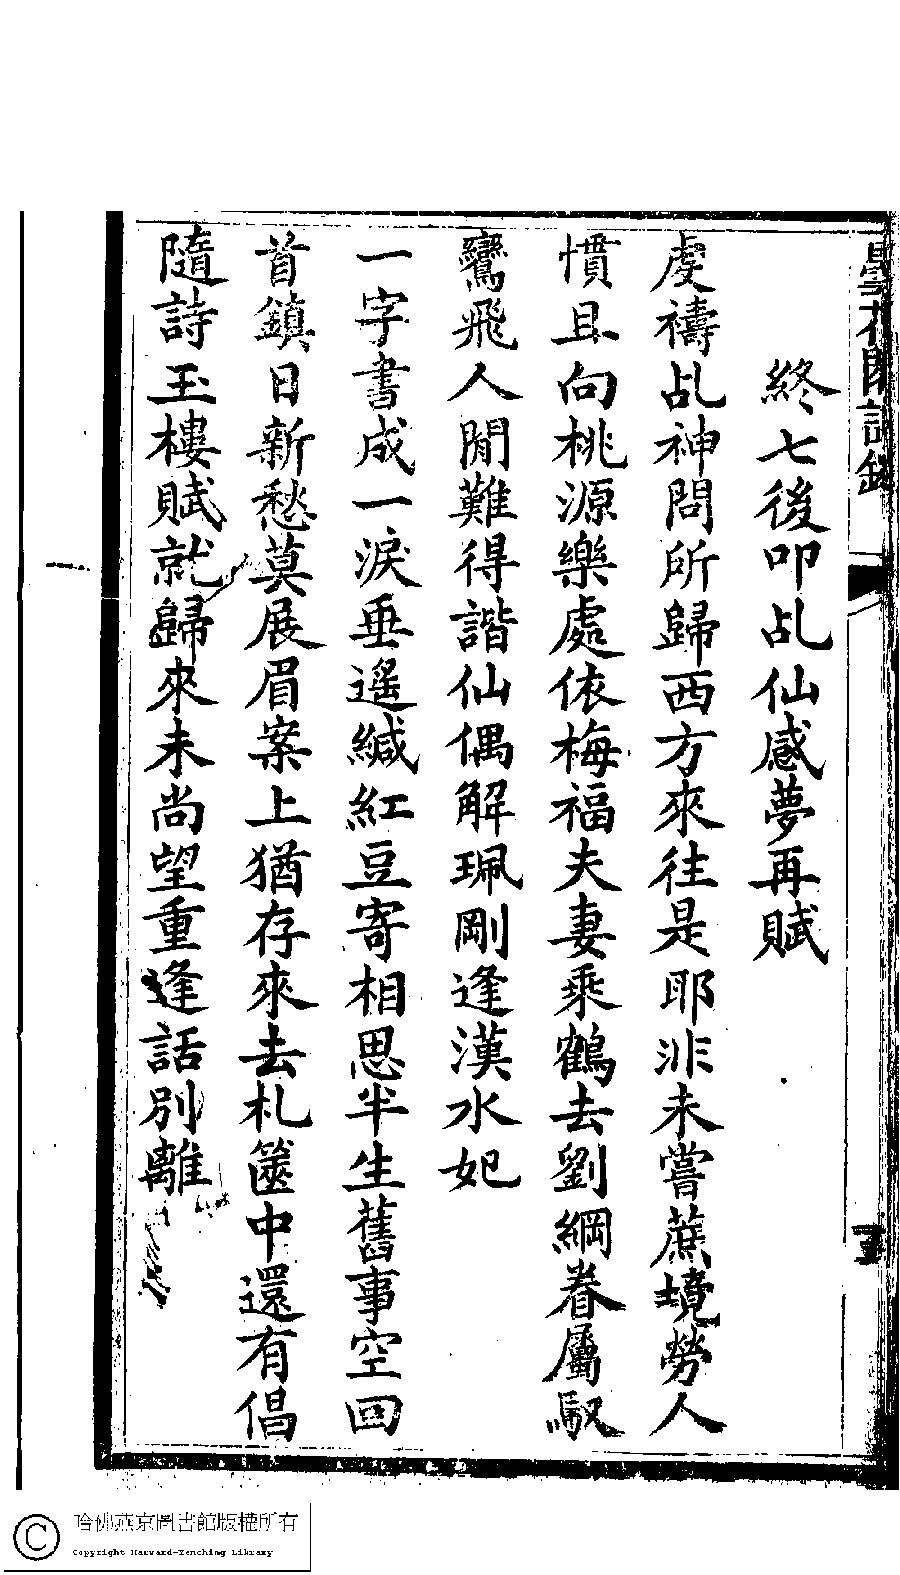 曇花閣詩鈔
終七後叩乩仙感夢再賦
虔禱乩神問所歸西方來往是耶非未嘗蔗境勞人
慣且向桃源樂處依梅福夫妻乘鶴去劉綱眷屬馭
鸞飛人閒難得諧仙偶解珮剛逢漢水妃
一字書成一淚垂遙緘紅豆寄相思半生舊事空回
首鎮日新愁莫展眉案上猶存來去札篋中還有倡
隨詩玉樓賦就歸來未尚望重逢話別離
哈佛燕京圖書館版權所有
Copyright Harvard-Yenching Library